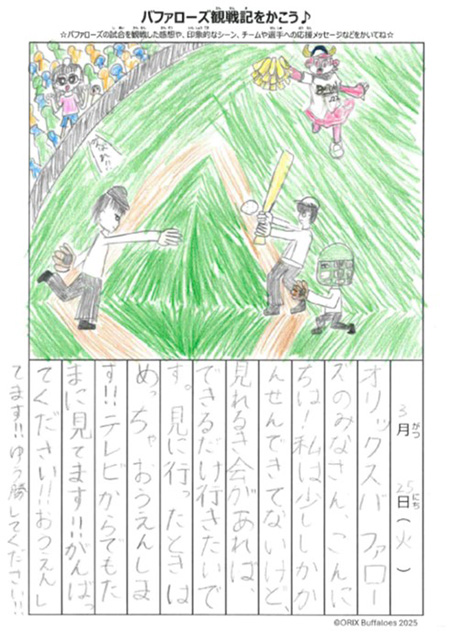 バファローズ観戦記をかこう♪
☆バファローズの試合を観戦した感想や、印象的なシーン、チームや選手への応援メッセージなどをかいてね☆
3月25日(火)
オリックスバファロー
ズのみなさん、こんに
ちは!私は少ししかか
んせんできてないけど、
見れるき会があれば、
できるだけ行きたいで
す。見に行ったときは
めっちゃおうえんしま
す!!テレビからでもた
まに見てます!!がんばっ
てください!!おうえんし
てます!!ゆう勝してください!!
©ORIX Buffaloes 2025